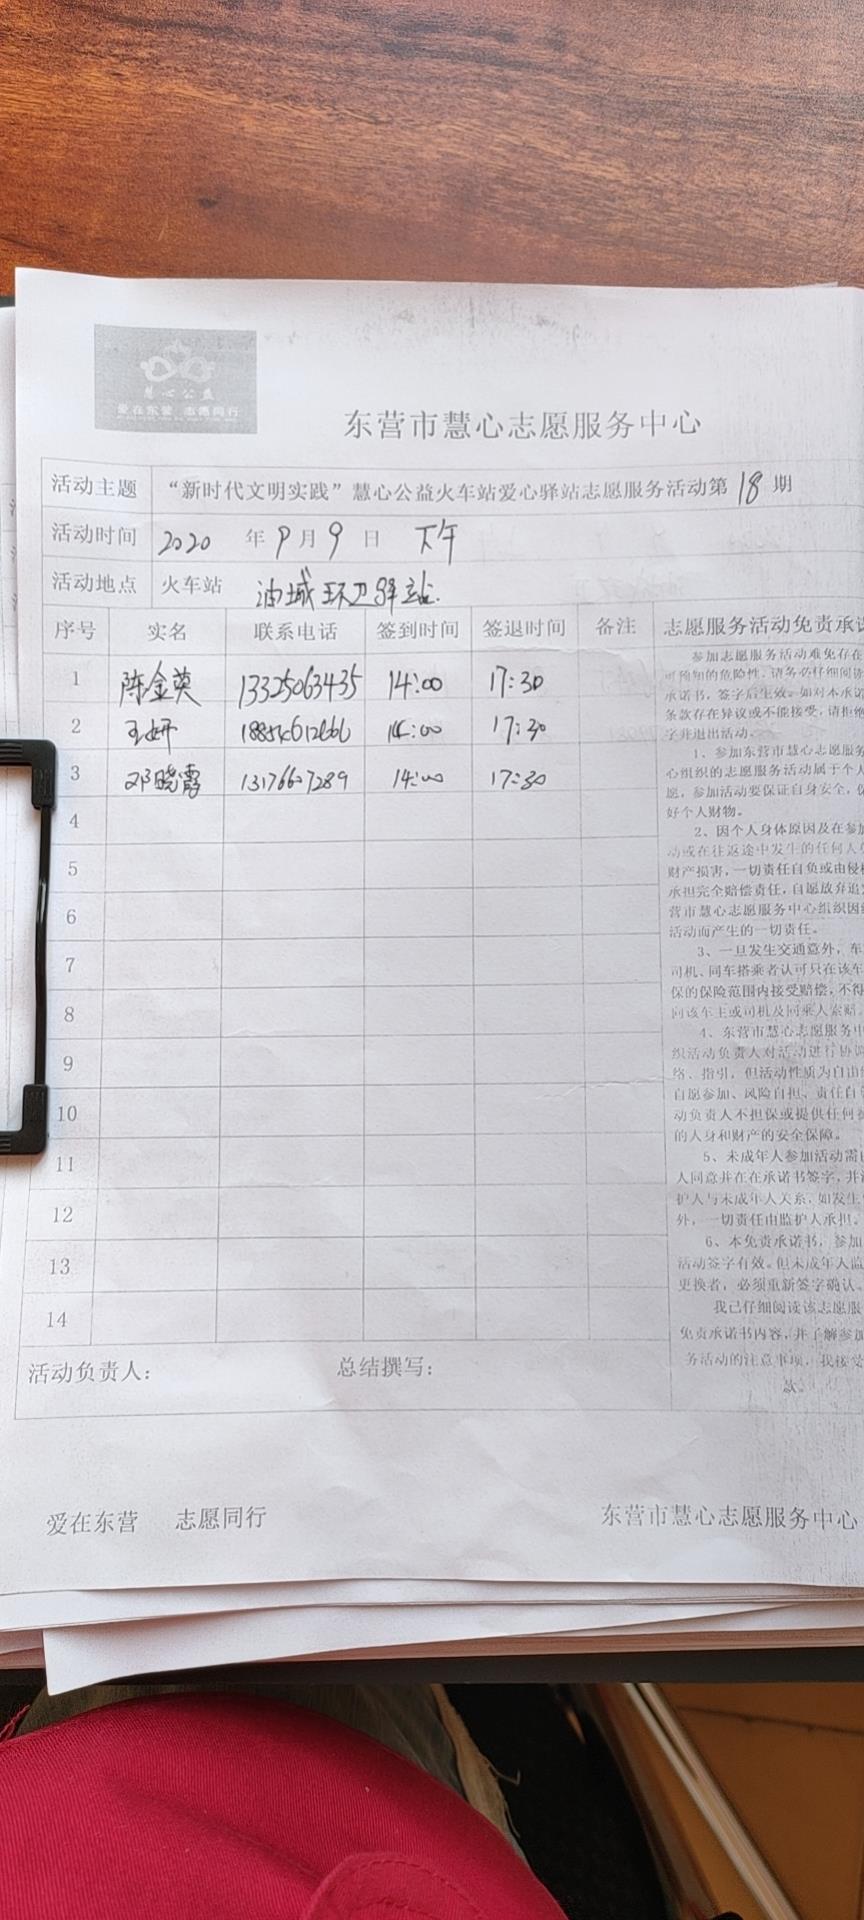 慧心公益
爱在东营 志愿同行
东营市慧心志愿服务中心
活动主题 “新时代文明实践”慧心公益火车站爱心驿站志愿服务活动第18期
活动时间 2020年9月9日 下午
活动地点 火车站 油城环卫驿站.
序号 实名 联系电话 签到时间 签退时间 备注
1 陈金英 13325063435 14:00 17:30
2 王妍 14:00 17:30
3 邓晓霞 13176607289 14:00 17:30
4
5
6
7
8
9
10
11
12
13
14
活动负责人： 总结撰写：
志愿服务活动免责承诺
参加志愿服务活动难免存在
可预知的危险性，请务必仔细阅读
承诺书，签字后生效。如对本承诺
条款存在异议或不能接受，请拒绝
字并退出活动。
1、参加东营市慧心志愿服务
心组织的志愿服务活动属于个人
愿，参加活动要保证自身安全，保
好个人财物。
2、因个人身体原因及在参加
动或在往返途中发生的任何人身
财产损害，一切责任自负或由侵权
承担完全赔偿责任，自愿放弃追究
营市慧心志愿服务中心组织因组
活动而产生的一切责任。
3、一旦发生交通意外，车
司机、同车搭乘者认可只在该车
保的保险范围内接受赔偿，不得
向该车主或司机及同乘人索赔。
4、东营市慧心志愿服务中
织活动负责人对活动进行协调
络、指引，但活动性质为自由组
自愿参加、风险自担、责任自
动负责人不担保或提供任何参
的人身和财产的安全保障。
5、未成年人参加活动需
人同意并在在承诺书签字，并
护人与未成年人关系，如发生
外，一切责任由监护人承担。
6、本免责承诺书，参加
活动签字有效。但未成年人监
更换者，必须重新签字确认。
我已仔细阅读该志愿服
免责承诺书内容，并了解参加
务活动的注意事项，我接受
款。
爱在东营 志愿同行 东营市慧心志愿服务中心